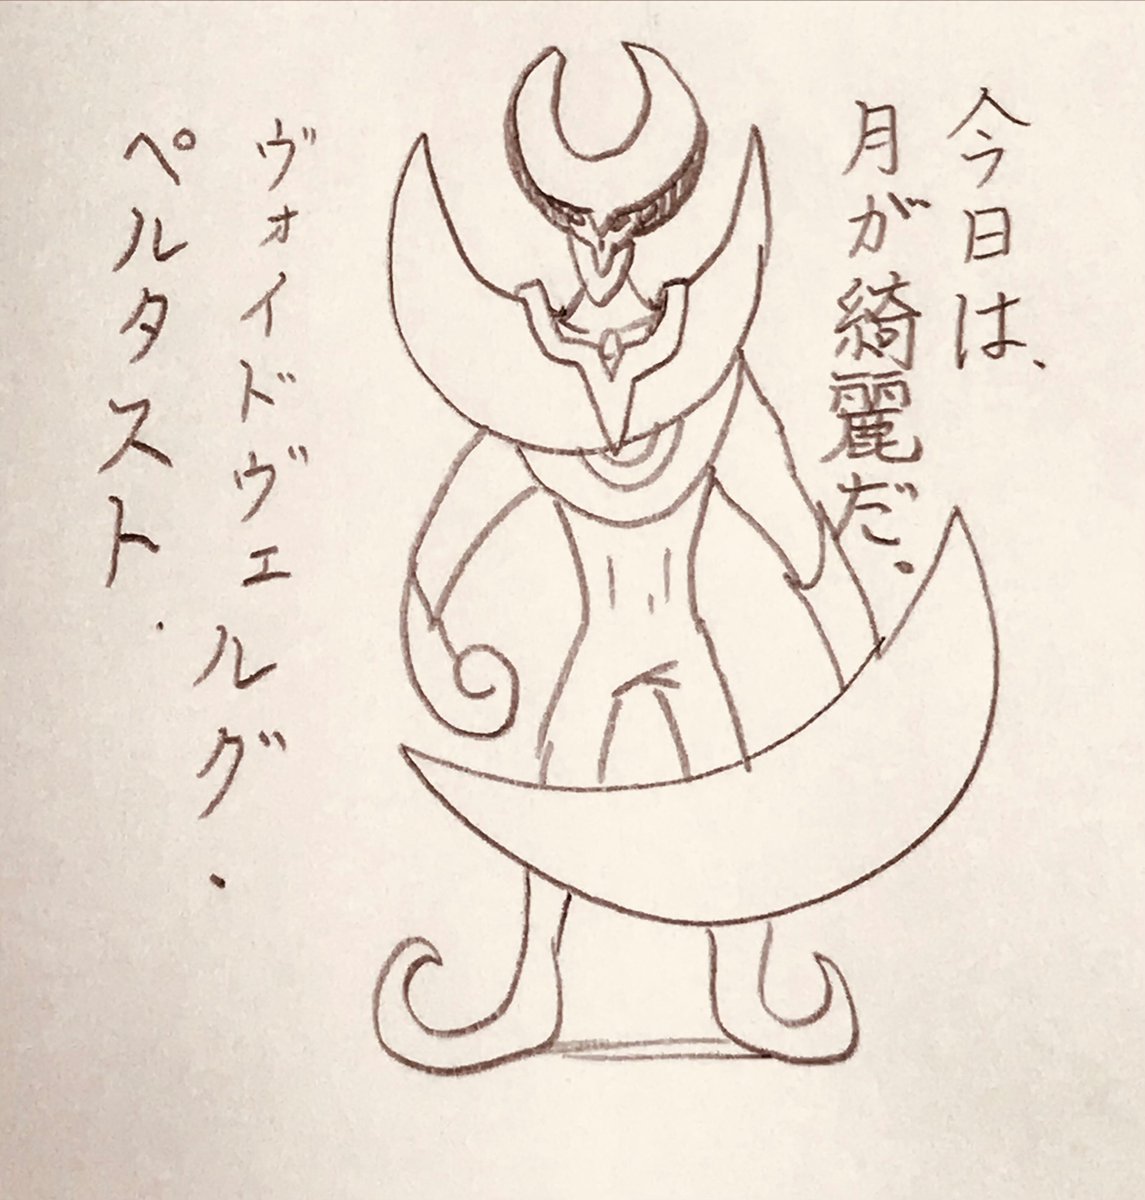 今日は、
月が綺麗だ、
ヴォイドヴェルグ・
ペルタスト.